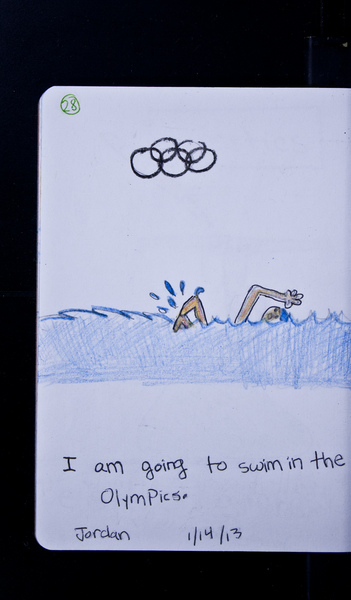 28
I am going to swim in the
OlymPics.
Jordan 1/14/13